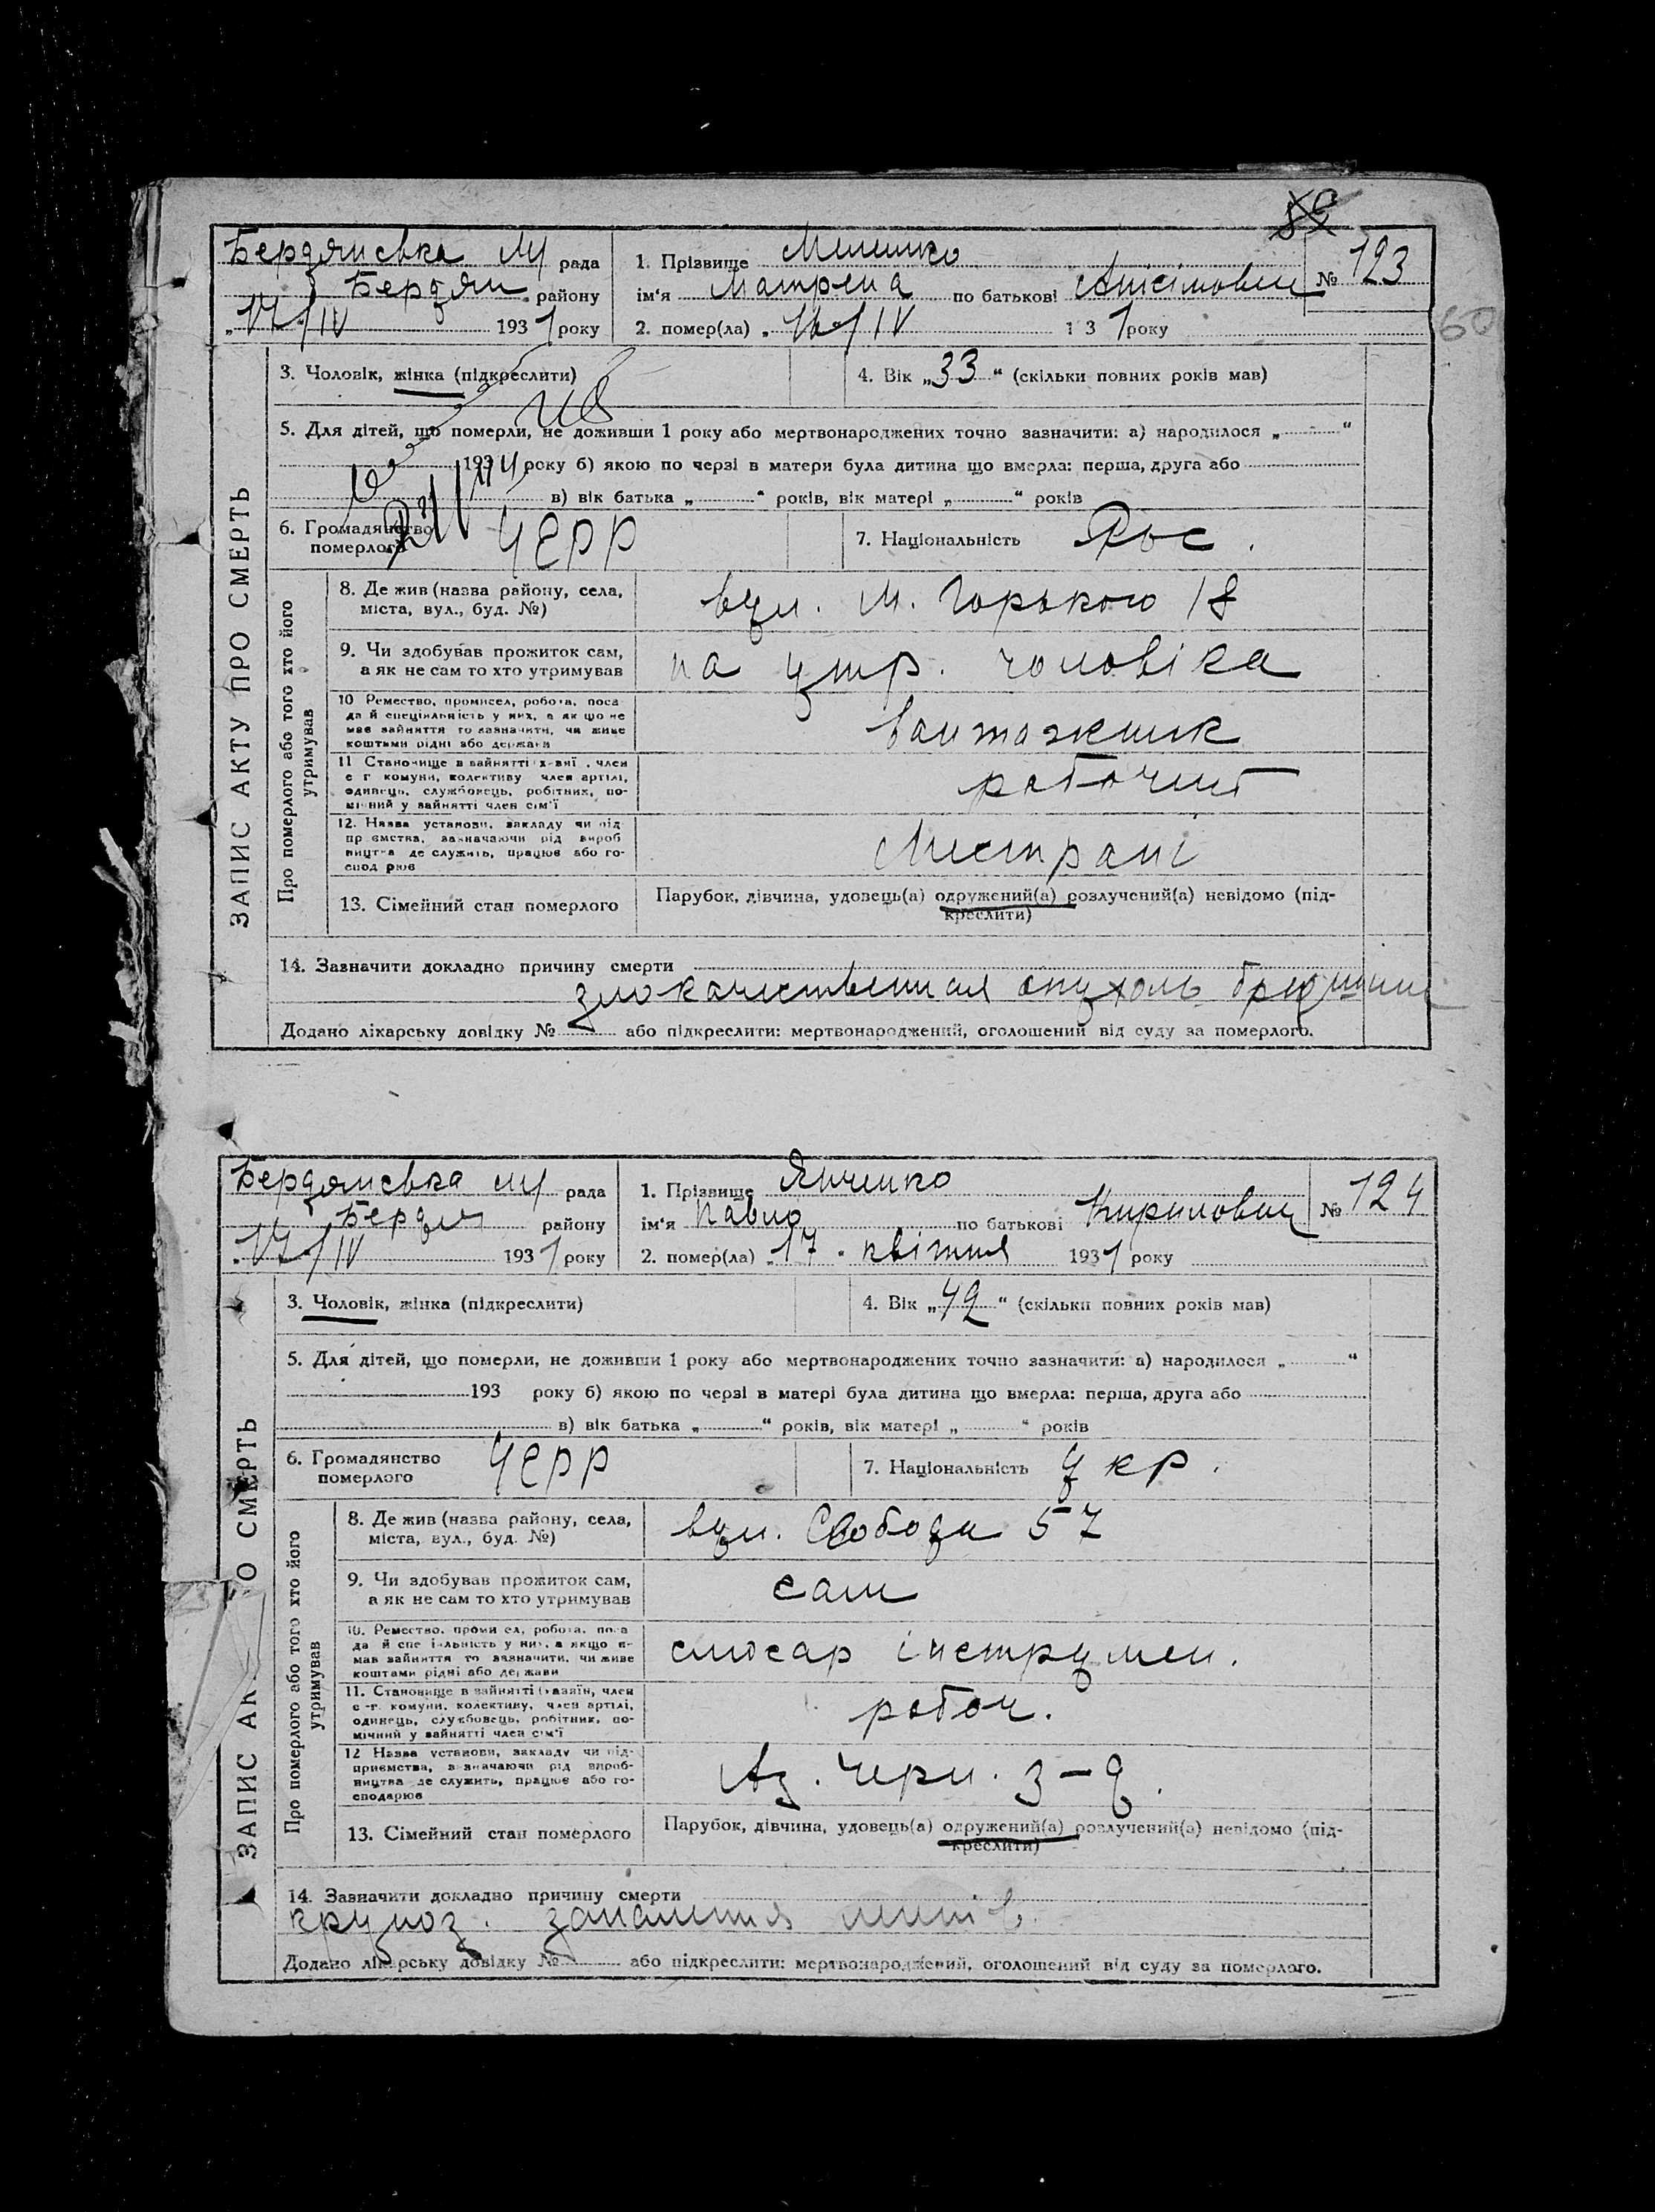 Бердянська м/ рада
1. Прізвище
№ 123
Бердян. району
ім'я Матрена по батькові Анісімовна
17/IV 1931 року
2. помер(ла) „16/IV 1 3 1 року
60
ЗАПИС АКТУ ПРО СМЕРТЬ
3. Чоловік, жінка (підкреслити)
4. Вік „33“ (скільки повних років мав)
5. Для дітей, що померли, не доживши 1 року або мертвонароджених точно зазначити: а) народилося „ “
193 року б) якою по черзі в матери була дитина що вмерла: перша, друга або
в) вік батька „ “ років, вік матері „ “ років
6. Громадянство
померлого
УСРР
7. Національність Рос.
Про померлого або того хто його
утримував
8. Де жив (назва району, села,
міста, вул., буд. №)
вул. М. Горького 18
9. Чи здобував прожиток сам,
а як не сам то хто утримував
на утр. чоловіка
10 Ремество, промисел, робота, поса
да й спеціяльність у них, а як що не
має зайняття то зазначити, чи живе
коштами рідні або держави
вантажник
11 Становище в зайнятті х-зяї, член
с г комуни, колективу член артілі,
одинець, службовець, робітник, по-
мічний у зайнятті член сім'ї
робочий
12. Назва установи, закладу чи під
пр ємства, зазначаючи рід вироб
ництва де служить, працює або го-
спод рює
13. Сімейний стан померлого
Парубок, дівчина, удовець(а) одружений(а) розлучений(а) невідомо (під-
креслити)
14. Зазначити докладно причину смерти
злокачественная опухоль брюшини
Додано лікарську довідку № або підкреслити: мертвонароджений, оголошений від суду за померлого.
Бердянська м/ рада
1. Прізвище Янченко
№ 124
Бердян району
ім'я Павло по батькові Кирилович
„17/IV 1931 року
2. помер(ла) „17 “ квітня 1931 року
ЗАПИС АК О СМЕРТЬ
3. Чоловік, жінка (підкреслити)
4. Вік „42“ (скільки повних років мав)
5. Для дітей, що померли, не доживши 1 року або мертвонароджених точно зазначити: а) народилося „ “
193 року б) якою по черзі в матері була дитина що вмерла: перша, друга або
в) вік батька „ “ років, вік матері „ “ років
6. Громадянство
померлого
УСРР
7. Національність Укр.
Про померлого або того хто його
утримував
8. Де жив (назва району, села,
міста, вул., буд. №)
вул. Свободи 57
9. Чи здобував прожиток сам,
а як не сам то хто утримував
сам
10. Ремество, промисел, робота, поса
да й спеціяльність у них, а якщо н-
мав зайняття то зазначити, чи живе
коштами рідні або держави
слюсар інструмен.
11. Становище в зайнятті (хазяїн, член
с-г. комуни, колективу, член артілі,
одинець, службовець, робітник, по-
мічний у зайнятті член сім'ї
робоч.
12 Назва установи, закладу чи під-
приємства, зазначаючи рід вироб-
ництва де служить, працює або го-
сподарює
Аз. черн. з-д.
13. Сімейний стан померлого
Парубок, дівчина, удовець(а) одружений(а) розлучений(а) невідомо (під-
креслити)
14. Зазначити докладно причину смерти
крупоз. запалення легенів
Додано лікарську довідку № або підкреслити: мертвонароджений, оголошений від суду за померлого.